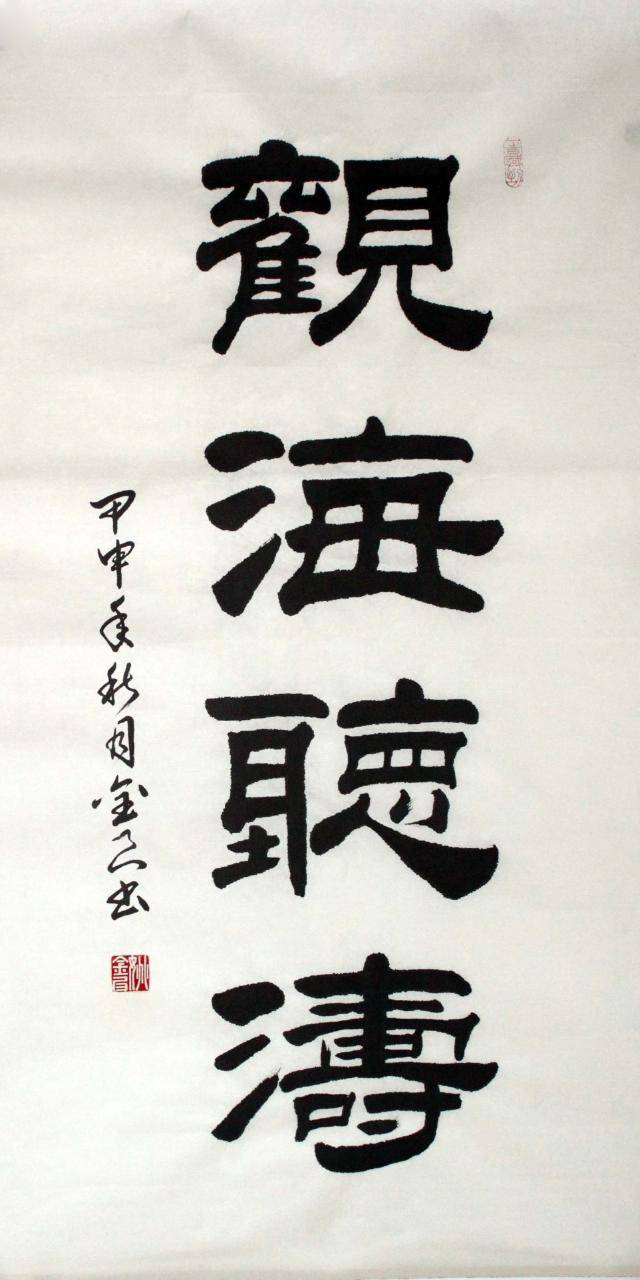 觀海聽濤
甲申年秋月金 書